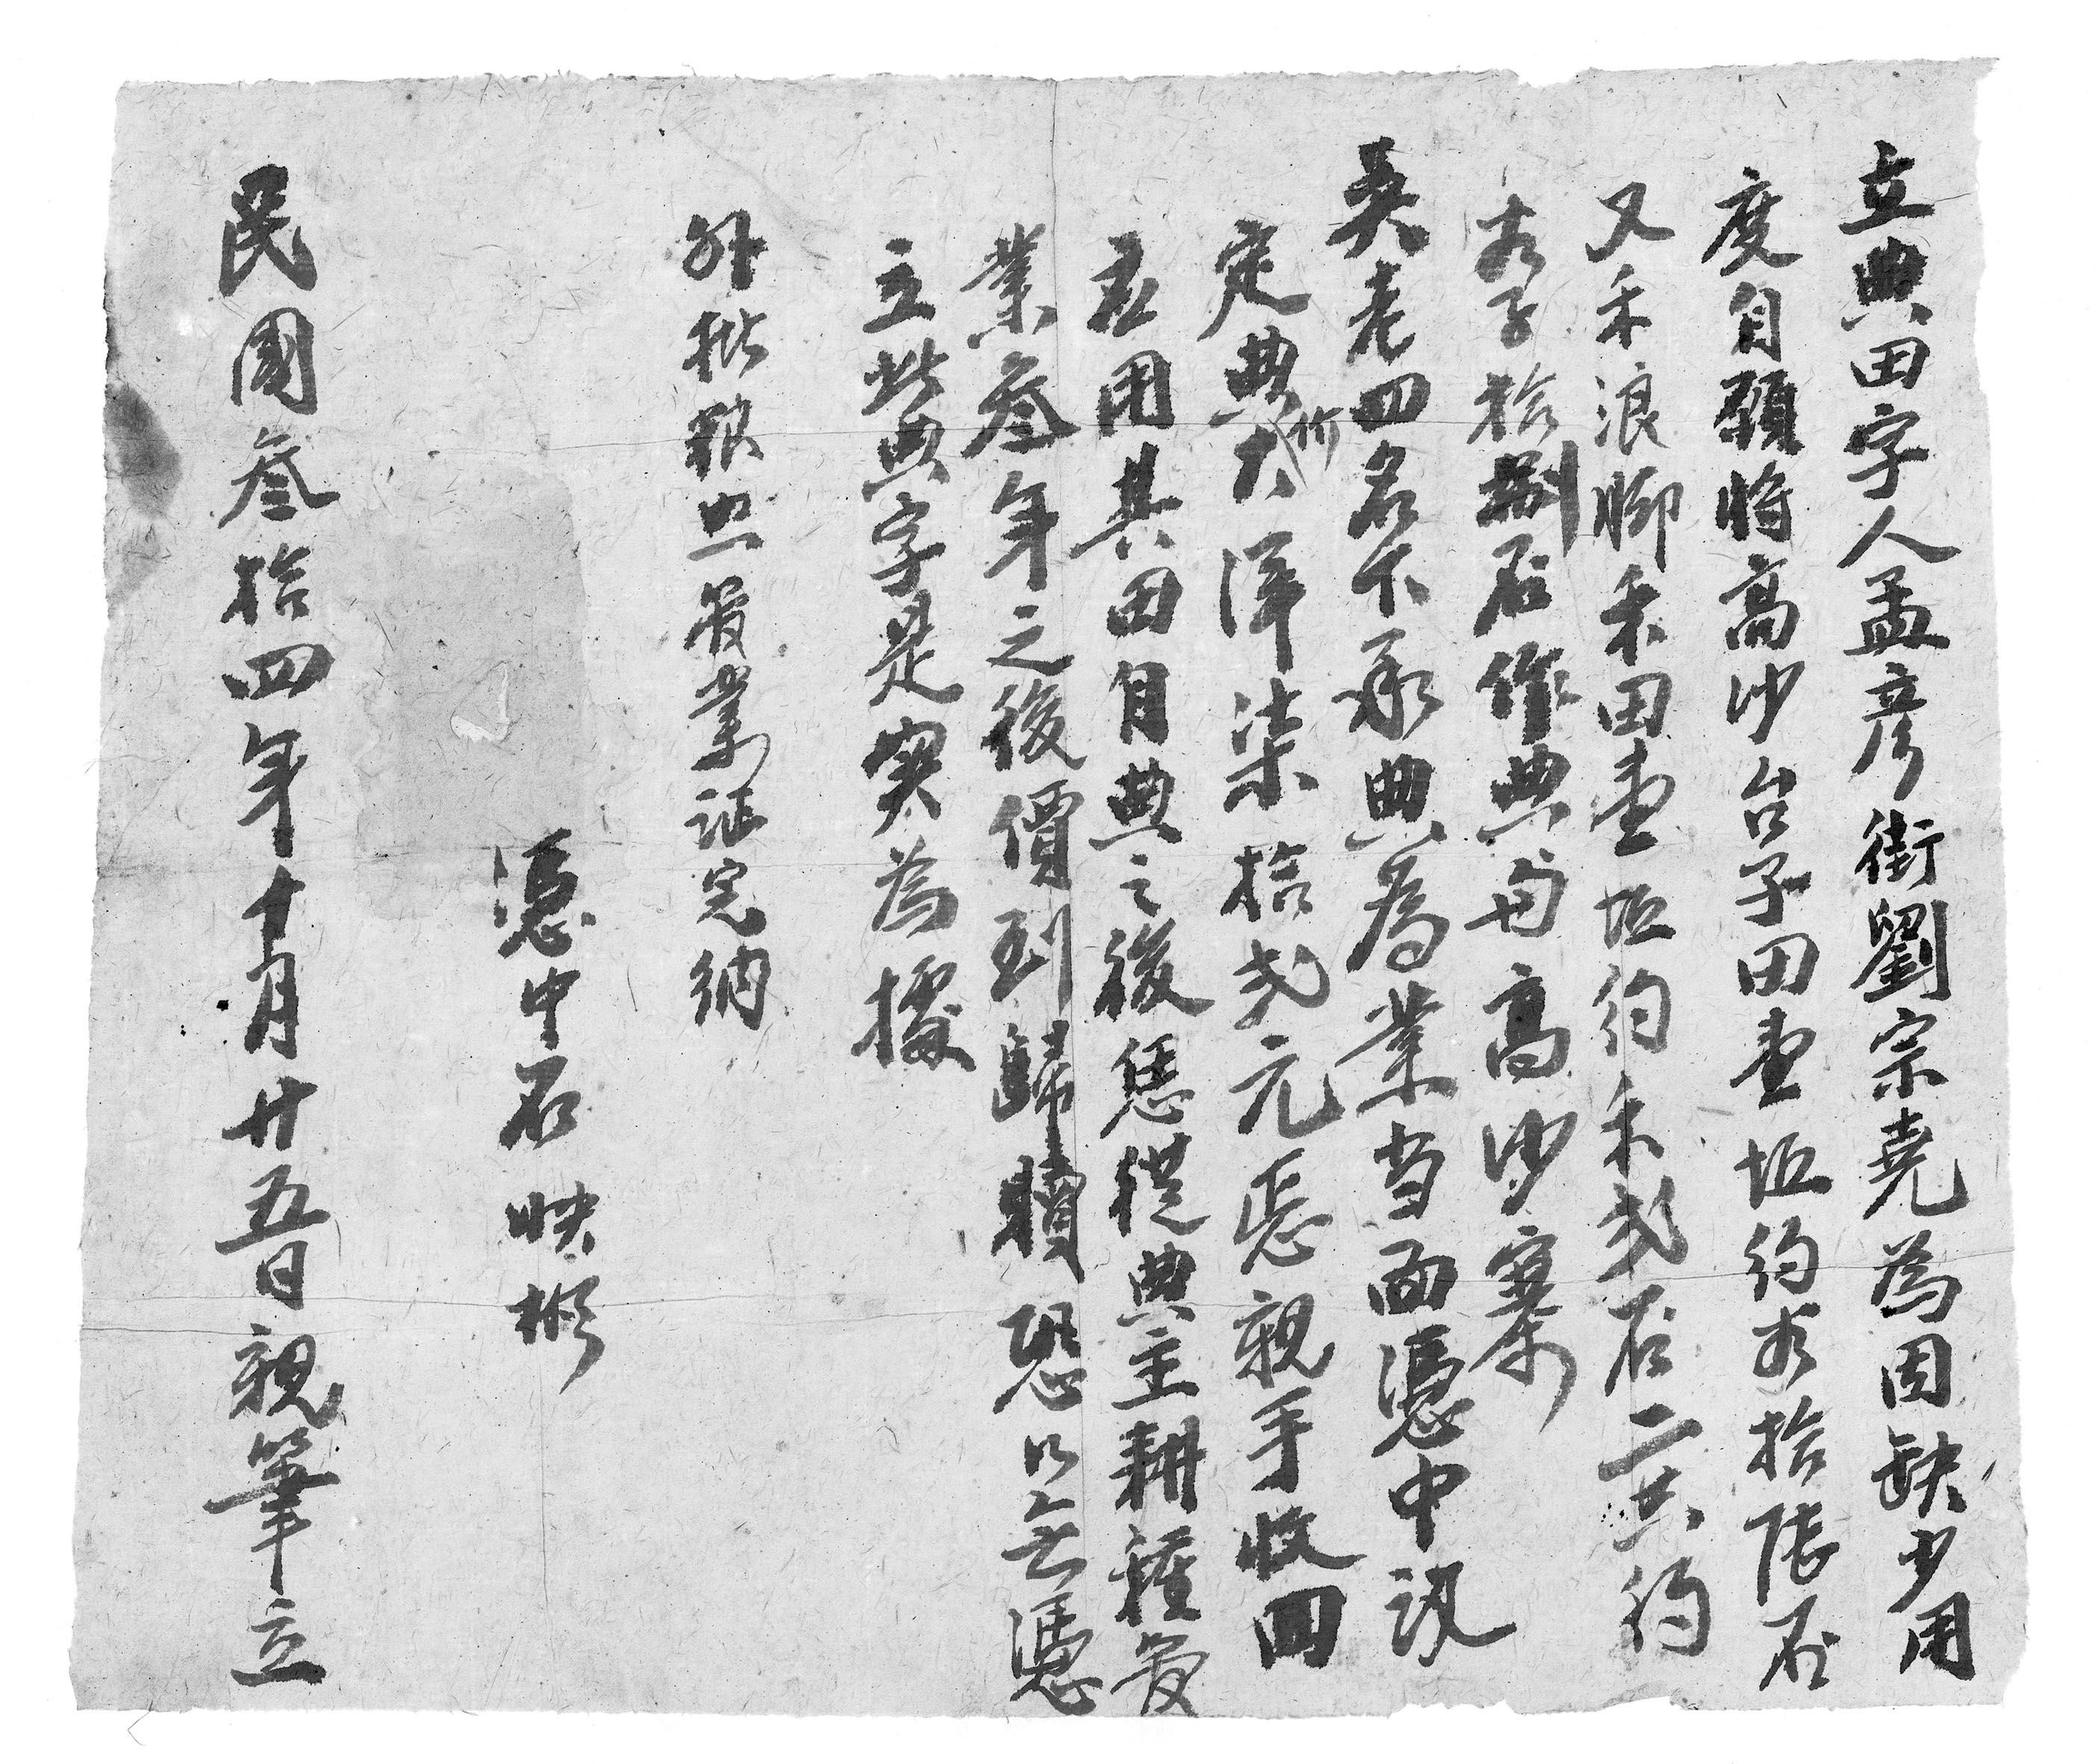 立典田字人孟彦街劉宗堯為因缺少用
度自願將高沙台子田壹坵約谷拾陸石
又禾浪脚禾田壹坵約禾弍石二共約
谷子拾捌石作典与高沙寨
吳老四名下承典為業当面憑中訊
定典价大洋柒拾弍元恁親手收回
應用其田自典之後恁從典主耕種管
業叁年之後價到歸贖恐口無憑
立此典字是實為據
外批粮照管業证完納
憑中石映彬
民國叁拾四年十月廿五日親筆立